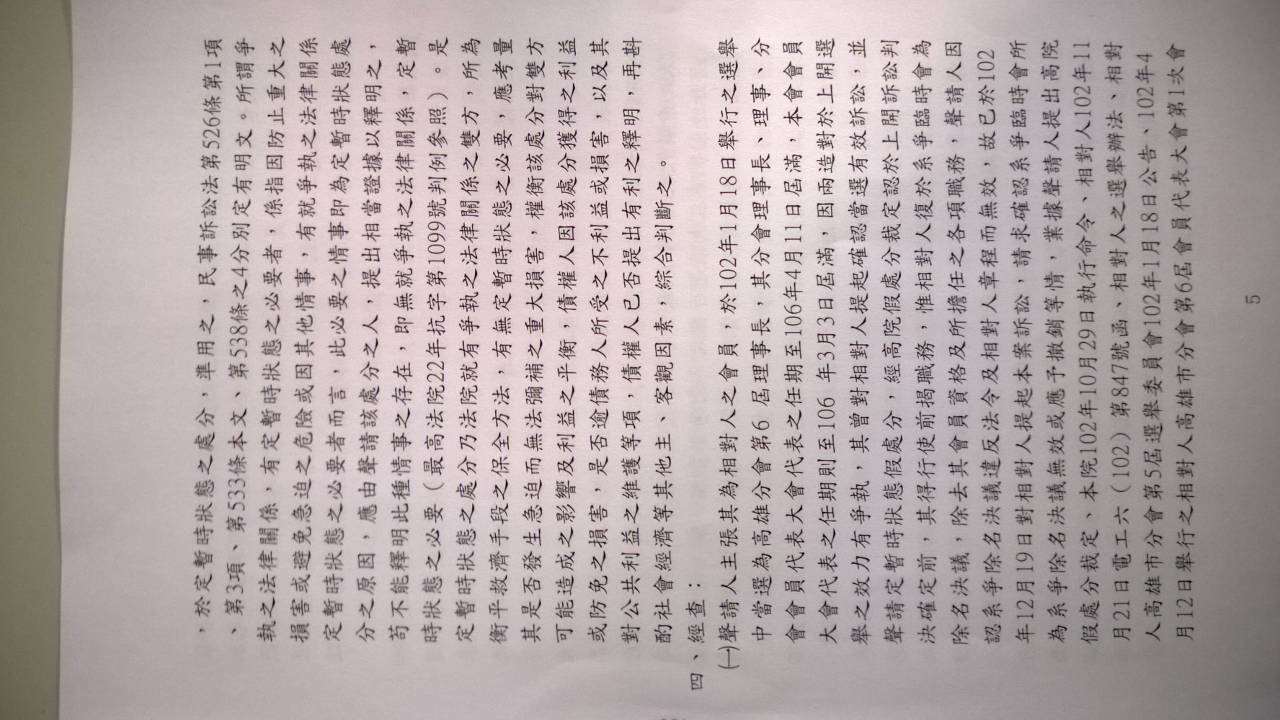 ，於定暫時狀態之處分，準用之，民事訴訟法第526條第1項
、第3項、第533條本文、第538條之4分別定有明文。所謂爭
執之法律關係，有定暫時狀態之必要者，係指因防止重大之
損害或避免急迫之危險或因其他情事，有就爭執之法律關係
定暫時狀態之必要者而言，此必要之情事即為定暫時狀態處
分之原因，應由聲請該處分之人，提出相當證據以釋明之，
苟不能釋明此種情事之存在，即無就爭執之法律關係，定暫
時狀態之必要（最高法院22年抗字第1099號判例參照）。是
定暫時狀態之處分乃法院就有爭執之法律關係之雙方，所為
衡平救濟手段之保全方法，有無定暫時狀態之必要，應考量
其是否發生急迫而無法彌補之重大損害，權衡該處分對雙方
可能造成之影響及利益之平衡，債權人因該處分獲得之利益
或防免之損害，是否逾債務人所受之不利益或損害，以及其
對公共利益之維護等項，債權人已否提出有利之釋明，再斟
酌社會經濟等其他主、客觀因素，綜合判斷之。
四、經查：
㈠聲請人主張其為相對人之會員，於102年1月18日舉行之選舉
中當選為高雄分會第6 屆理事長，其分會理事長、理事、分
會會員代表大會代表之任期至106年4月11日屆滿，本會會員
大會代表之任期則至106 年3月3日屆滿，因兩造對於上開選
舉之效力有爭執，其曾對相對人提起確認當選有效訴訟，並
聲請定暫時狀態假處分，經高院假處分裁定認於上開訴訟判
決確定前，其得行使前揭職務，惟相對人復於系爭臨時會為
除名決議，除去其會員資格及所擔任之各項職務，聲請人因
認系爭除名決議違反法令及相對人章程而無效，故已於102
年12月19日對相對人提起本案訴訟，請求確認系爭臨時會所
為系爭除名決議無效或應予撤銷等情，業據聲請人提出高院
假處分裁定、本院102年10月29日執行命令、相對人102年11
月21日電工六（102）第847號函、相對人之選舉辦法、相對
人高雄市分會第5屆選舉委員會102年1月18日公告、102年4
月12日舉行之相對人高雄市分會第6屆會員代表大會第1次會
5